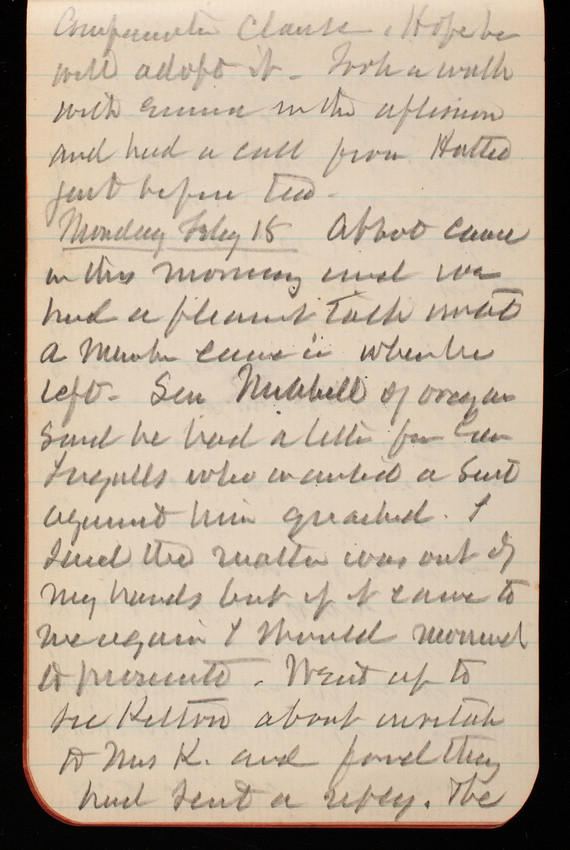 Comparative Clause. Hope he
will adopt it - Took a walk
with Emma in the afternoon
and had a call from Hattie
just before tea -
Monday Feby 18 Abbot came
in this morning and we
had a pleasant talk until
a Member came in when he
left - Sen Mitchell of oregon
said he had a letter from Gen
Ingalls who wanted a Suit
against him quashed. I
said the matter was out of
my hands but if it came to
me again I should
to prosecute. Went up to
see Kelton about invitation
to Mrs K. and found they
had sent a reply. The